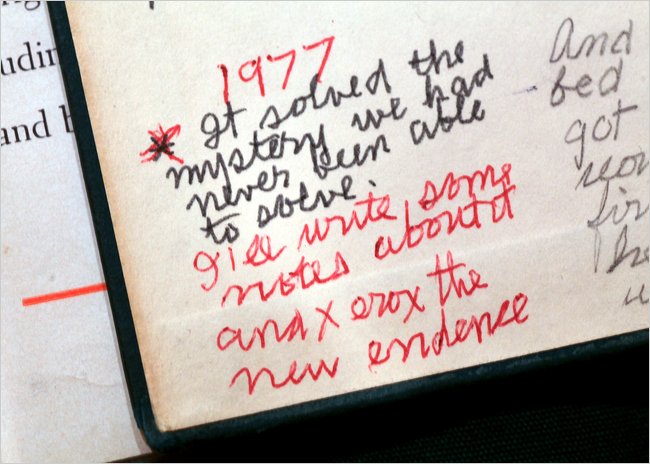 udin
and b
1977
* It solved the
mystery we had
never been able
to solve.
I'll write some
notes about it
and xerox the
new evidence
And
bed
got